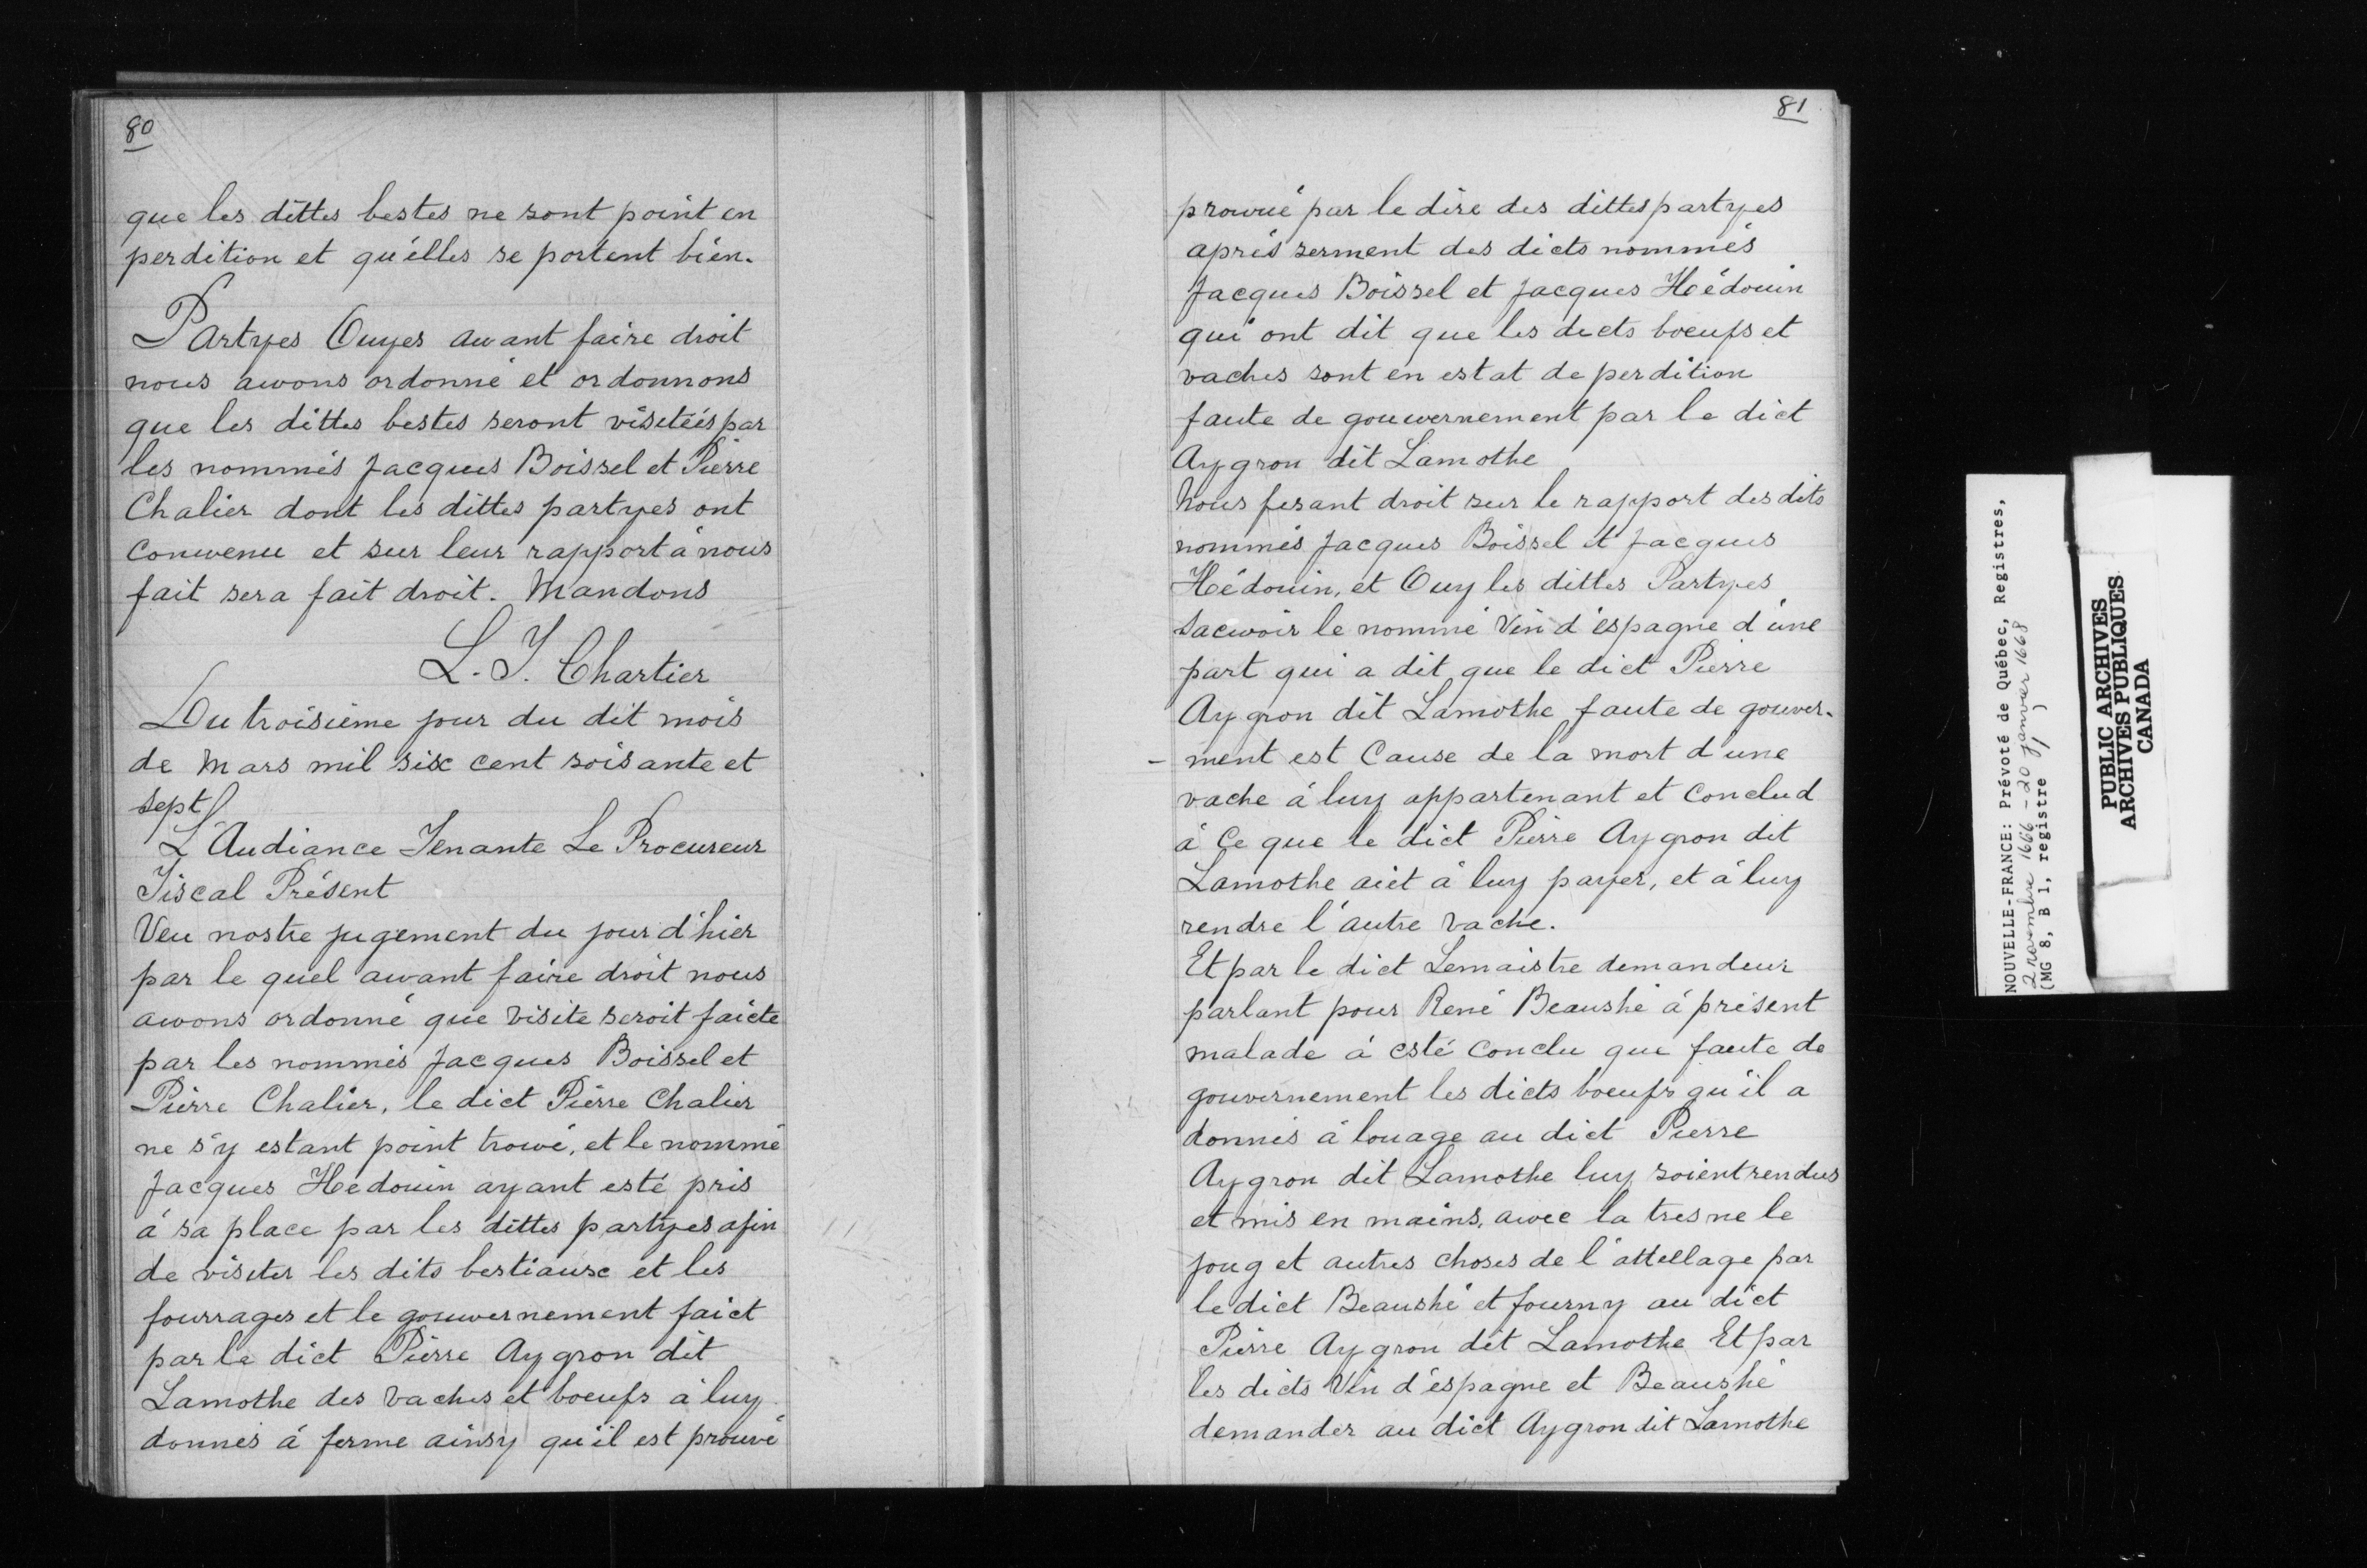 80
que les dittes bestes ne sont point en
perdition et qu'elles se portent bien.
Partyes Ouyes auant faire droit
nous auons ordonné et ordonnons
que les dittes bestes seront visitéés par
les nommés Jacques Boissel et Pierre
Chalier dont les dittes partyes ont
Conuenu et sur leur rapport à nous
fait sera fait droit. Mandons
L. T. Chartier
Du troisième jour du dit mois
de Mars mil six cent soisante et
sept
L'Audiance Tenante Le Procureur
Fiscal Présent
Veu nostre jugement du jour d'hier
par le quel auant faire droit nous
auons ordonné que visite seroit faicte
par les nommés Jacques Boissel et
Pierre Chalier, le dict Pierre Chalier
ne s'y estant point trouué, et le nommé
Jacques Hédouin ayant esté pris
à sa place par les dittes partyes afin
de visiter les dits bestiaux et les
fourrages et le gouuernement faict
par le dict Pierre Aygron dit
Lamothe des Vaches et boeufs à luy
donnés à ferme ainsy qu'il est prouvé
81
prouué par le dire des dittes partyes
après serment des dicts nommés
Jacques Boissel et Jacques Hédouin
qui ont dit que les dicts boeufs et
vaches sont en estat de perdition
faute de gouuernement par le dict
Aygron dit Lamothe
Nous fesant droit sur le rapport des dits
nommés Jacques Boissel et Jacques
Hédouin, et Ouy les dittes Partyes
Sacuoir le nommé Vin d'éspagne d'une
part qui a dit que le dict Pierre
Aygron dit Lamothe faute de gouver-
- ment est Cause de la mort d'une
vache à luy appartenant et Conclud
à Ce que le dict Pierre Aygron dit
Lamothe aiet à luy payer, et à luy
rendre l'autre Vache.
Et par le dict Lemaistre demandeur
parlant pour René Beaushé à présent
malade à esté Conclu que faute de
gouvernement les dicts boeufs qu'il a
donnés à louage au dict Pierre
Aygron dit Lamothe luy soient rendus
et mis en mains, auec la tresne le
joug et autres choses de l'attellage par
le dict Beaushé et fourny au dict
Pierre Aygron dit Lamothe Et par
les dicts Vin d'éspagne et Beaushé
demander au dict Aygron dit Lamothe
NOUVELLE-FRANCE: Prévoté de Québec, Registres,
2 novembre 1666 - 20 janvier 1668
(MG 8, B 1, registre 1)
PUBLIC ARCHIVES
ARCHIVES PUBLIQUES
CANADA